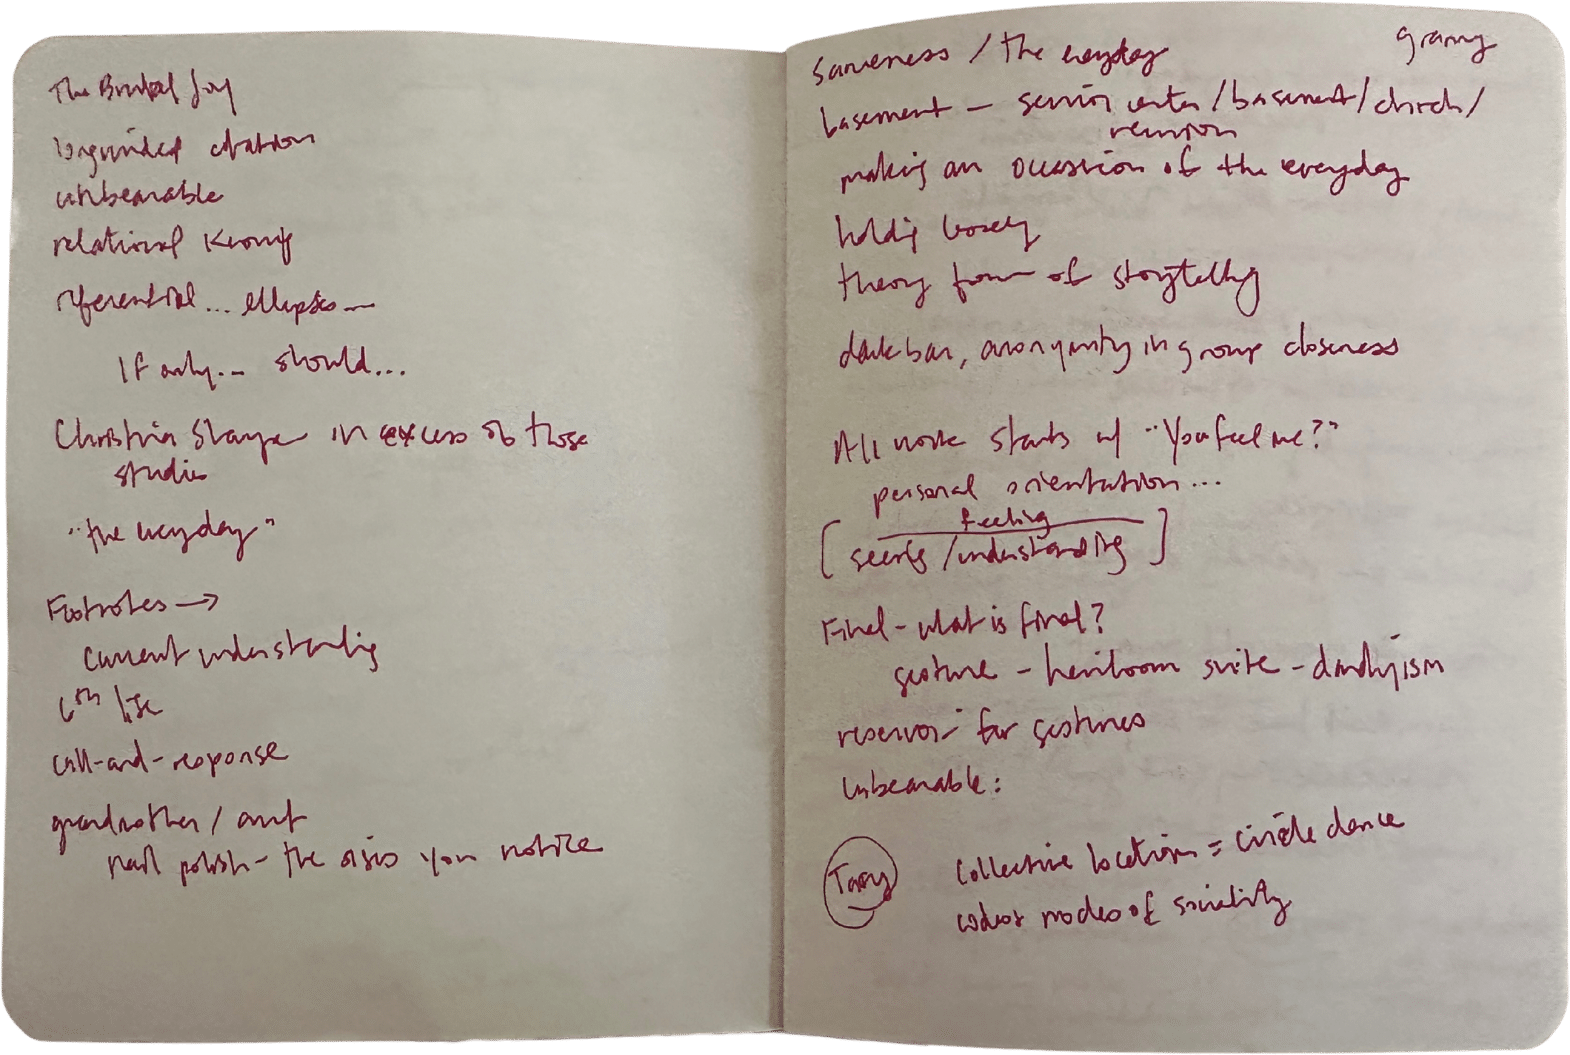 The Brutal Joy
citation
unbearable
relational knowing
referential... ellipsis —
If only... should...
Christina Sharpe in excess of those
studies
"the everyday"
Footnotes →
current understanding
6th
call-and-response
grandmother / aunt
nail polish - the you notice
Sameness / the everyday
basement - senior center / basement / church /
reunion
making an occasion of the everyday
holding loosely
theory form of storytelling
dark bar, anonymity in group closeness
All work starts w/ "You feel me?"
personal orientation...
feeling
[ seeing / understanding ]
Final - what is final?
gesture - heirloom suite - dandyism
reservoir for gestures
Unbearable:
collective locations = circle dance
modes of sociality